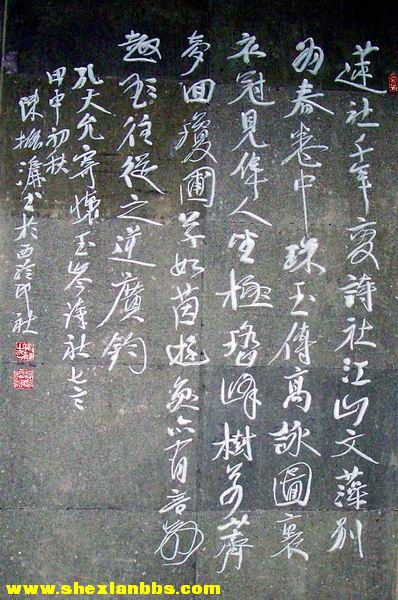 蓮社千年變詩社江山文藻別
為春卷中珠玉傳高詠圖裏
衣冠見偉人坐極峰樹若薺
夢回瓊圃草如茵
趣往從之逆廣鈞
孔大允寄懷玉岑詩社
甲申初秋
陳振濂書於西泠印社
www.shexianbbs.com